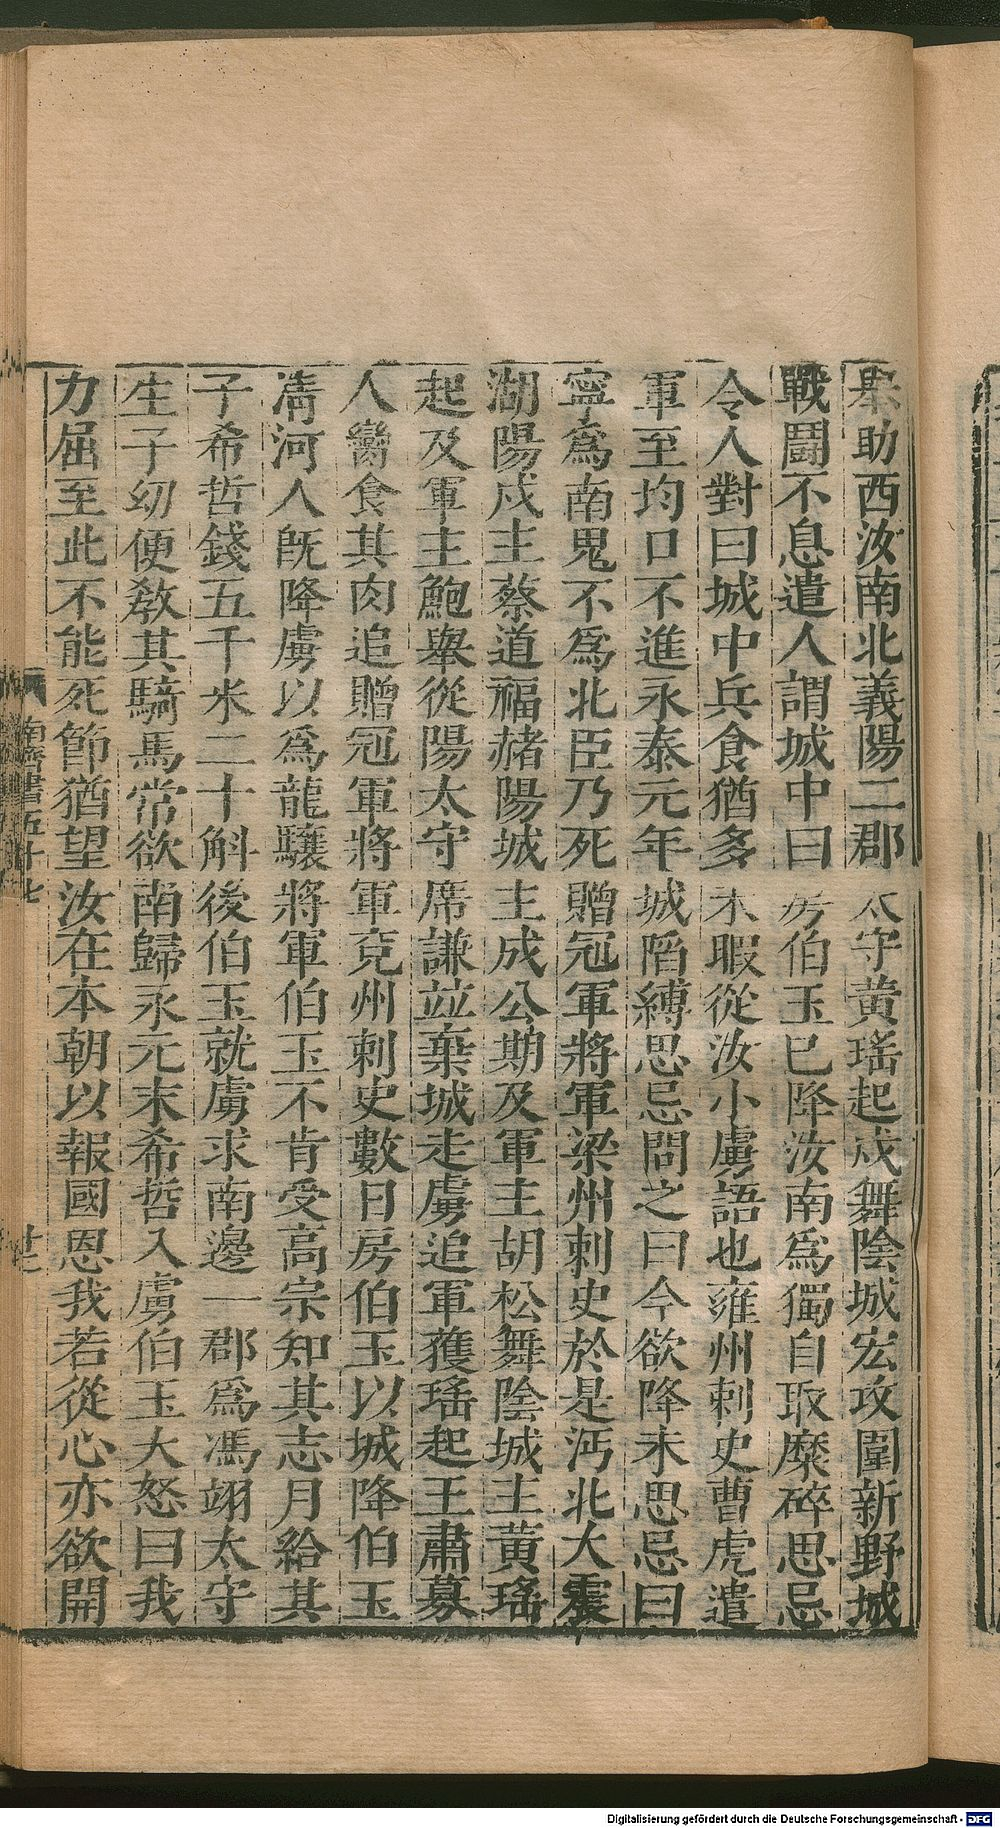 㬰助西汝南北義陽二郡太守黃瑤起戍舞陰城宏攻圍新野城
戰鬬不息遣人謂城中曰房伯玉已降汝南爲獨自取糜碎思忌
令人對曰城中兵食猶多未暇從汝小虜語也雍州刺史曹虎遣
軍至均口不進永泰元年城陷縛思忌問之曰今欲降未思忌曰
寧爲南鬼不爲北臣乃死贈冠軍將軍梁州刺史於是沔北大震
湖陽戍主蔡道福赭陽城主成公期及軍主胡松舞陰城主黃瑤
起及軍主鮑舉從陽太守席謙並棄城走虜追軍獲瑤起王肅募
人臠食其肉追贈冠軍將軍兗州刺史數日房伯玉以城降伯玉
清河人旣降虜以爲龍驤將軍伯玉不肯受高宗知其志月給其
子希哲錢五千米二十斛後伯玉就虜求南邊一郡爲馮翊太守
生子幼便敎其騎馬常欲南歸永元末希哲入虜伯玉大怒曰我
力屈至此不能死節猶望汝在本朝以報國恩我若從心亦欲開
南齊書五十七
廿三
Digitalisierung gefördert durch die Deutsche Forschungsgemeinschaft - DFG